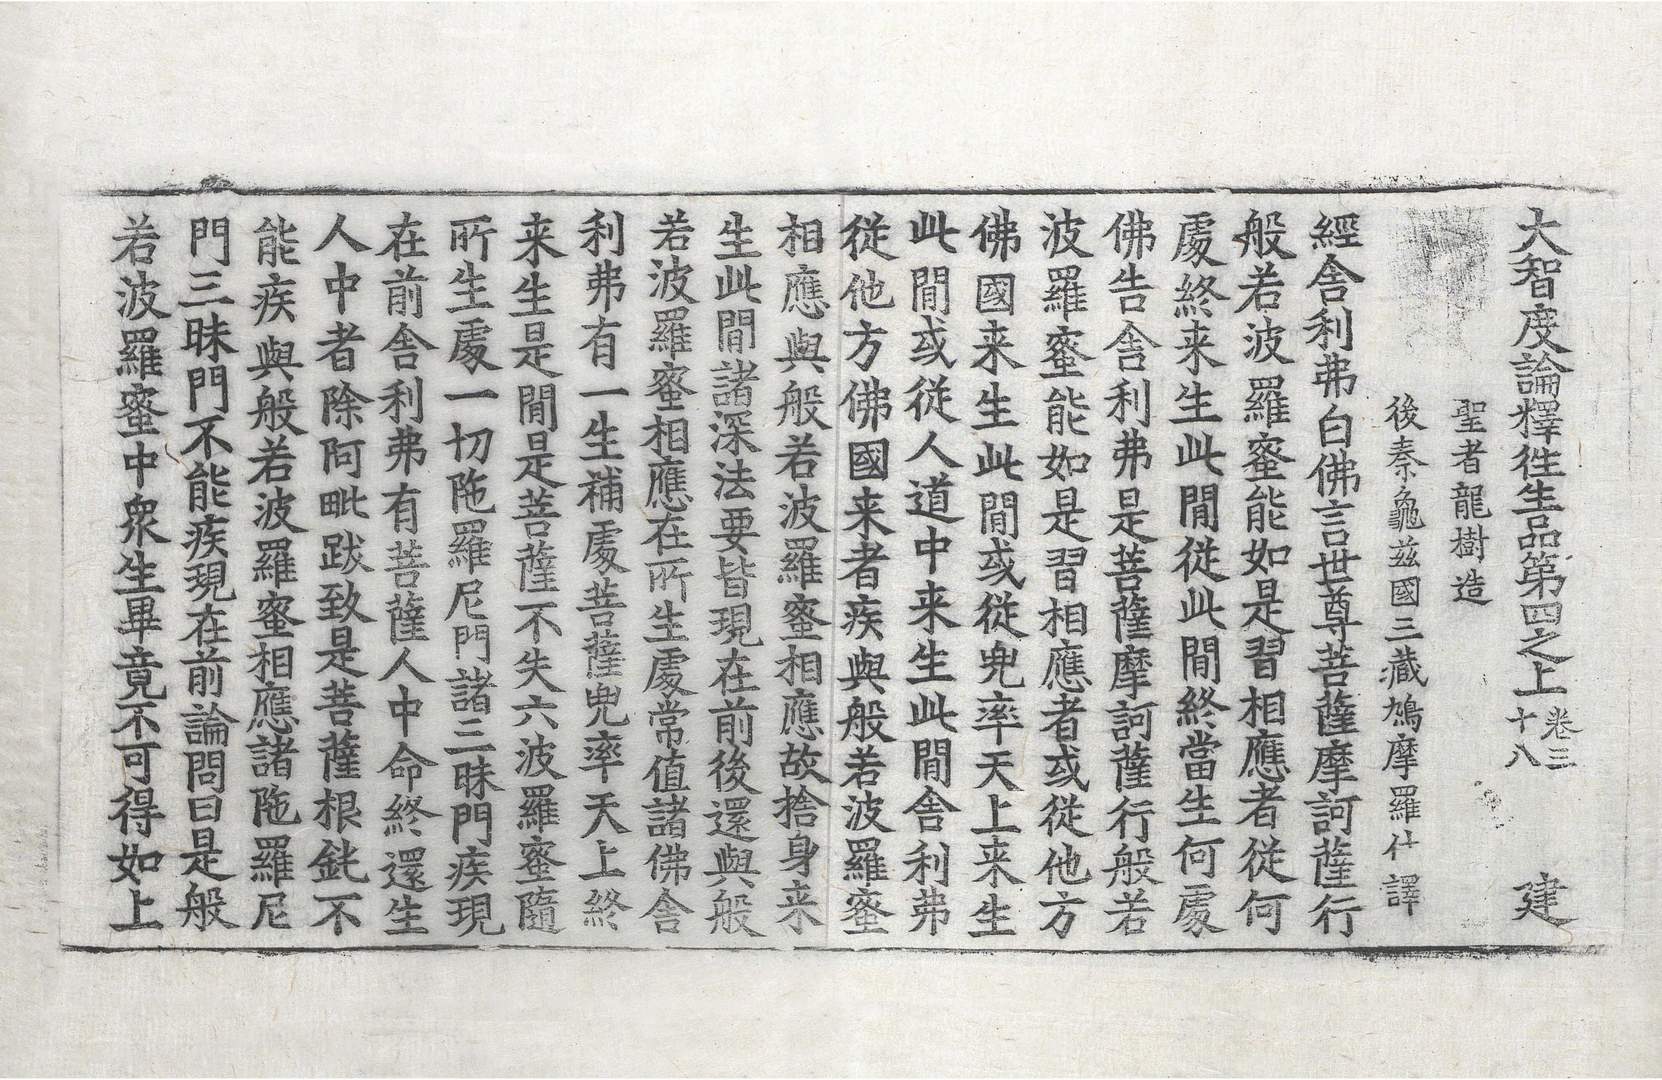 大智度論釋徃生品第四之上 卷三十八 建
聖者龍樹造
後秦龜茲國三藏鳩摩羅什譯
經舎利弗白佛言世尊菩薩摩訶薩行
般若波羅蜜能如是習相應者從何
處終来生此間從此間終當生何處
佛告舎利弗是菩薩摩訶薩行般若
波羅蜜能如是習相應者或從他方
佛國来生此間或從兜率天上来生
此間或從人道中来生此間舎利弗
從他方佛國来者疾與般若波羅蜜
相應與般若波羅蜜相應故捨身来
生此間諸深法要皆現在前後還與般
若波羅蜜相應在所生處常值諸佛舎
利弗有一生補處菩薩兜率天上終
来生是間是菩薩不失六波羅蜜隨
所生處一切陁羅尼門諸三昧門疾現
在前舎利弗有菩薩人中命終還生
人中者除阿毗跋致是菩薩根鈍不
能疾與般若波羅蜜相應諸陁羅尼
門三昧門不能疾現在前論問曰是般
若波羅蜜中衆生畢竟不可得如上